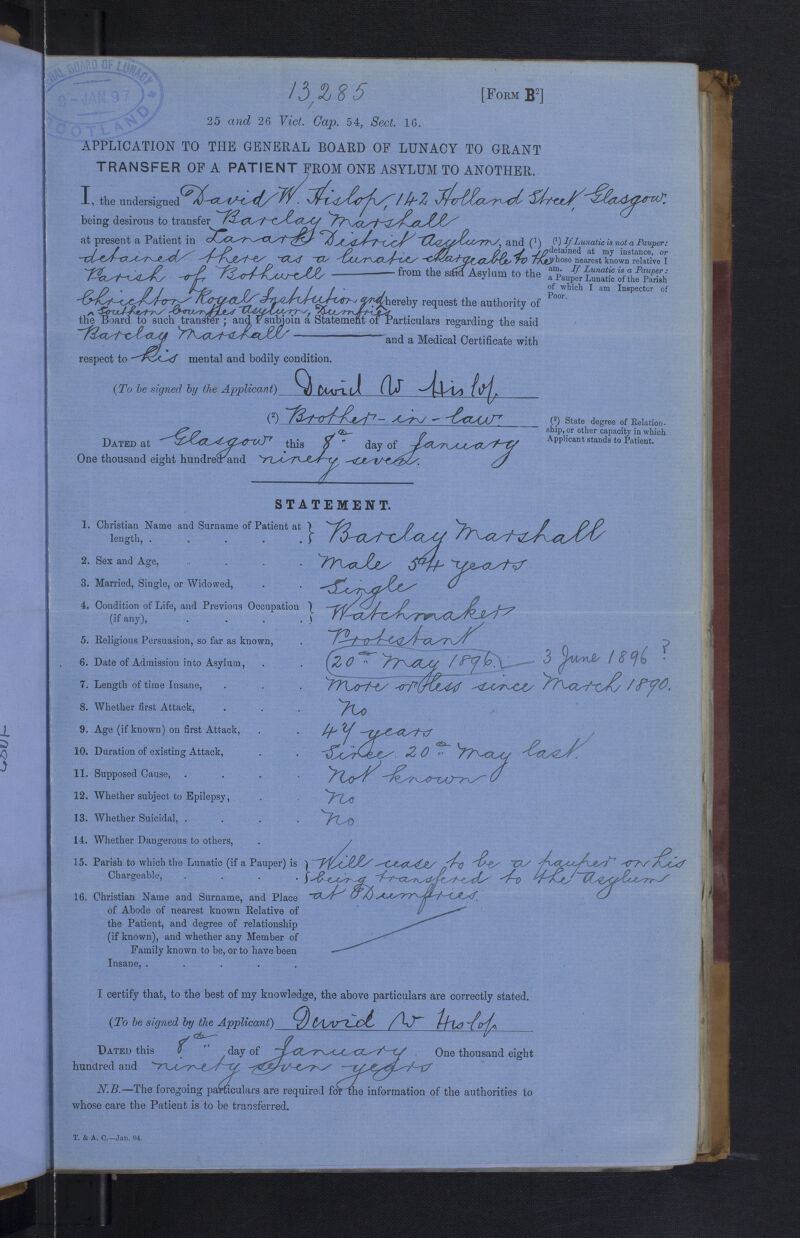 GENERAL BOARD OF LUNACY
9-JAN.97
SCOTLAND
13,285
[FORM B²]
25 and 26 Vict. Cap. 54, Sect. 16.
APPLICATION TO THE GENERAL BOARD OF LUNACY TO GRANT
TRANSFER OF A PATIENT FROM ONE ASYLUM TO ANOTHER.
I, the undersigned David W. Hislop, 142 Holland Street, Glasgow.
being desirous to transfer Barclay Marshall
at present a Patient in Lanark District Asylum, and (¹)
detained there as a lunatic chargeable to the
Parish of Bothwell from the said Asylum to the
Chrichton Royal Institution and hereby request the authority of
Southern Counties Asylum, Dumfries
the Board to such transfer; and I subjoin a Statement of Particulars regarding the said
Barclay Marshall and a Medical Certificate with
respect to his mental and bodily condition.
(¹) If Lunatic is not a Pauper:
detained at my instance, or
whose nearest known relative I
am. If Lunatic is a Pauper:
a Pauper Lunatic of the Parish
of which I am Inspector of
Poor.
(To be signed by the Applicant) David W Hislop
(²) Brother-in-law
(²) State degree of Relation-
ship, or other capacity in which
Applicant stands to Patient.
DATED at Glasgow this 8th day of January
One thousand eight hundred and ninety seven.
STATEMENT.
1. Christian Name and Surname of Patient at
length, . . . . . Barclay Marshall
2. Sex and Age, . . . . Male 54 years
3. Married, Single, or Widowed, . . Single
4. Condition of Life, and Previous Occupation
(if any), . . . . Watchmaker
5. Religious Persuasion, so far as known, . Protestant
6. Date of Admission into Asylum, . . (20th May 1896.) 3 June 1896?
7. Length of time Insane, . . . More or less since March 1890.
8. Whether first Attack, . . . No
9. Age (if known) on first Attack, . . 47 years
10. Duration of existing Attack, . . Since 20th May last.
11. Supposed Cause, . . . . Not known
12. Whether subject to Epilepsy, . . No
13. Whether Suicidal, . . . . No
14. Whether Dangerous to others, .
15. Parish to which the Lunatic (if a Pauper) is Will cease to be a pauper on his
Chargeable, . . . . being transfered to the Asylum
at Dumfries.
16. Christian Name and Surname, and Place
of Abode of nearest known Relative of
the Patient, and degree of relationship
(if known), and whether any Member of
Family known to be, or to have been
Insane, . . . . .
I certify that, to the best of my knowledge, the above particulars are correctly stated.
(To be signed by the Applicant) David W Hislop
DATED this 8th day of January One thousand eight
hundred and ninety seven years
N.B.—The foregoing particulars are required for the information of the authorities to
whose care the Patient is to be transferred.
T. & A. C.—Jan. 94.